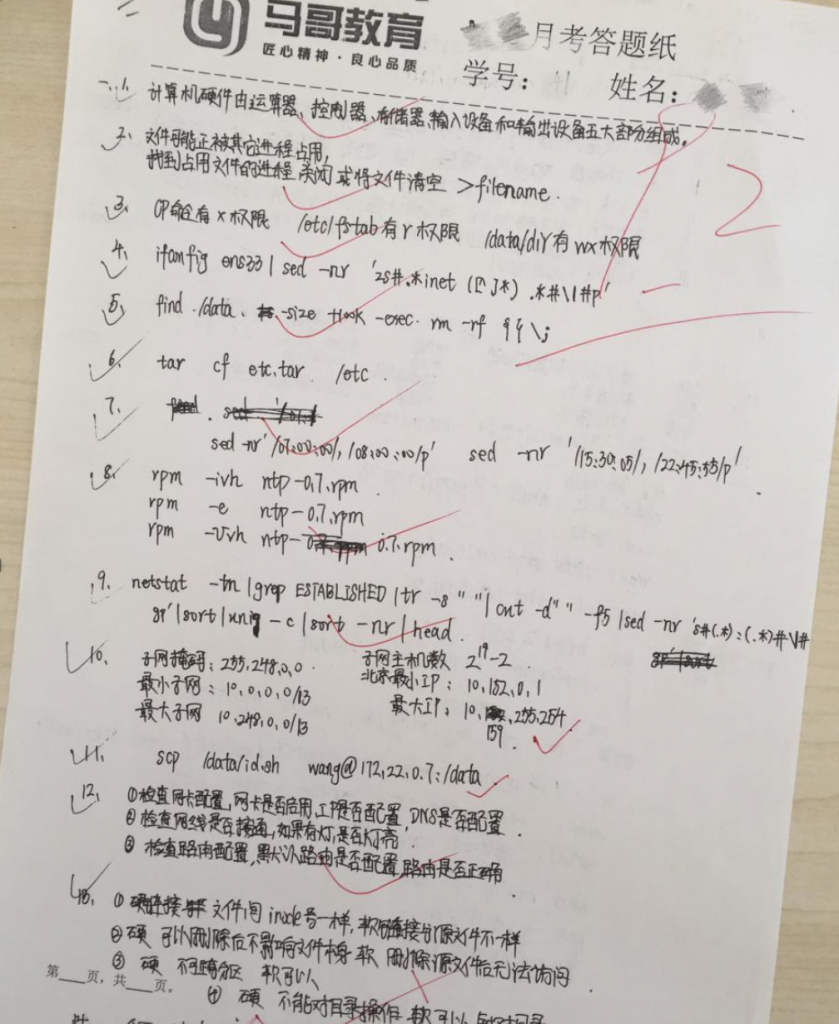 马哥教育
匠心精神·良心品质
月考答题纸
学号: 姓名:
一.1. 计算机硬件由运算器、控制器、存储器、输入设备和输出设备五大部分组成。
2. 文件可能正被其它进程占用,
找到占用文件的进程 关闭 或将文件清空 >filename.
3. CP命令有x权限 /etc/fstab有r权限 /data/dir有wx权限
4. ifonfig ens33 | sed -nr '2s#.*inet ([^ ]*) .*#\1#p'
5. find ./data . -size +100k -exec rm -rf {} \;
6. tar cf etc.tar /etc .
7.
sed -nr '/07:00:00/,/08:00:00/p' sed -nr '/15:30:05/, /22:45:55/p' .
8. rpm -ivh ntp-0.7.rpm .
rpm -e ntp-0.7.rpm
rpm -Uvh ntp- 0.7.rpm .
9. netstat -tn | grep ESTABLISHED | tr -s " " | cut -d" " -f5 | sed -nr 's#(.*):(.*)#\1#
gp' | sort | uniq -c | sort -nr | head.
10. 子网掩码: 255.248.0.0. 子网主机数 2^19-2 .
最小子网: 10.0.0.0/13 北京最小IP: 10.152.0.1
最大子网 10.248.0.0/13 最大IP: 10.159.255.254 .
11. scp /data/id.sh wang@172.22.0.7:/data
12. ①检查网卡配置,网卡是否启用,IP是否配置,DNS是否配置.
② 检查网线是否接通,如果有灯,是否灯亮.
③ 检查路由配置,默认路由是否配置,路由是否正确
13. ① 硬链接 文件间 inode号一样, 软链接与源文件不一样
② 硬 可以删除后不影响文件本身 软 删除源文件后无法访问
③ 硬 不可跨分区 软可以
第 页,共 页。
④ 硬 不能对目录操作 软可以
12